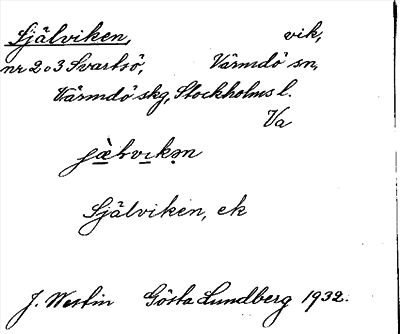 Själviken, vik,
nr 2 o 3 Svartsö, Värmdö sn,
Värmdö skg, Stockholms l.
Va
Själviken, ek
J. Westin Gösta Lundberg 1932.